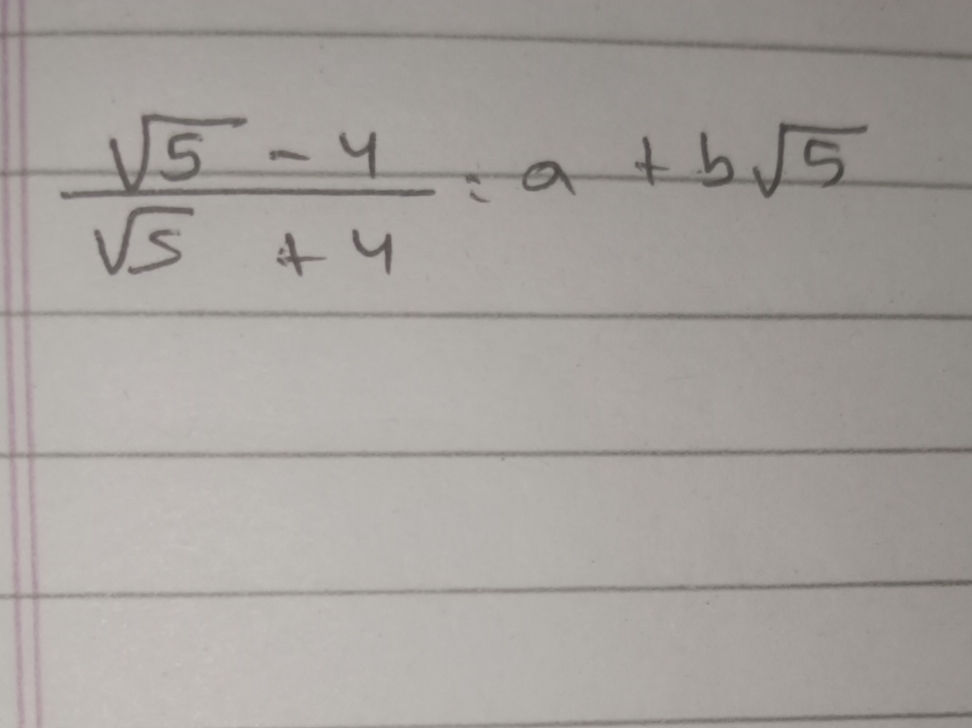 √5 - 4
√5 + 4 = a + b√5